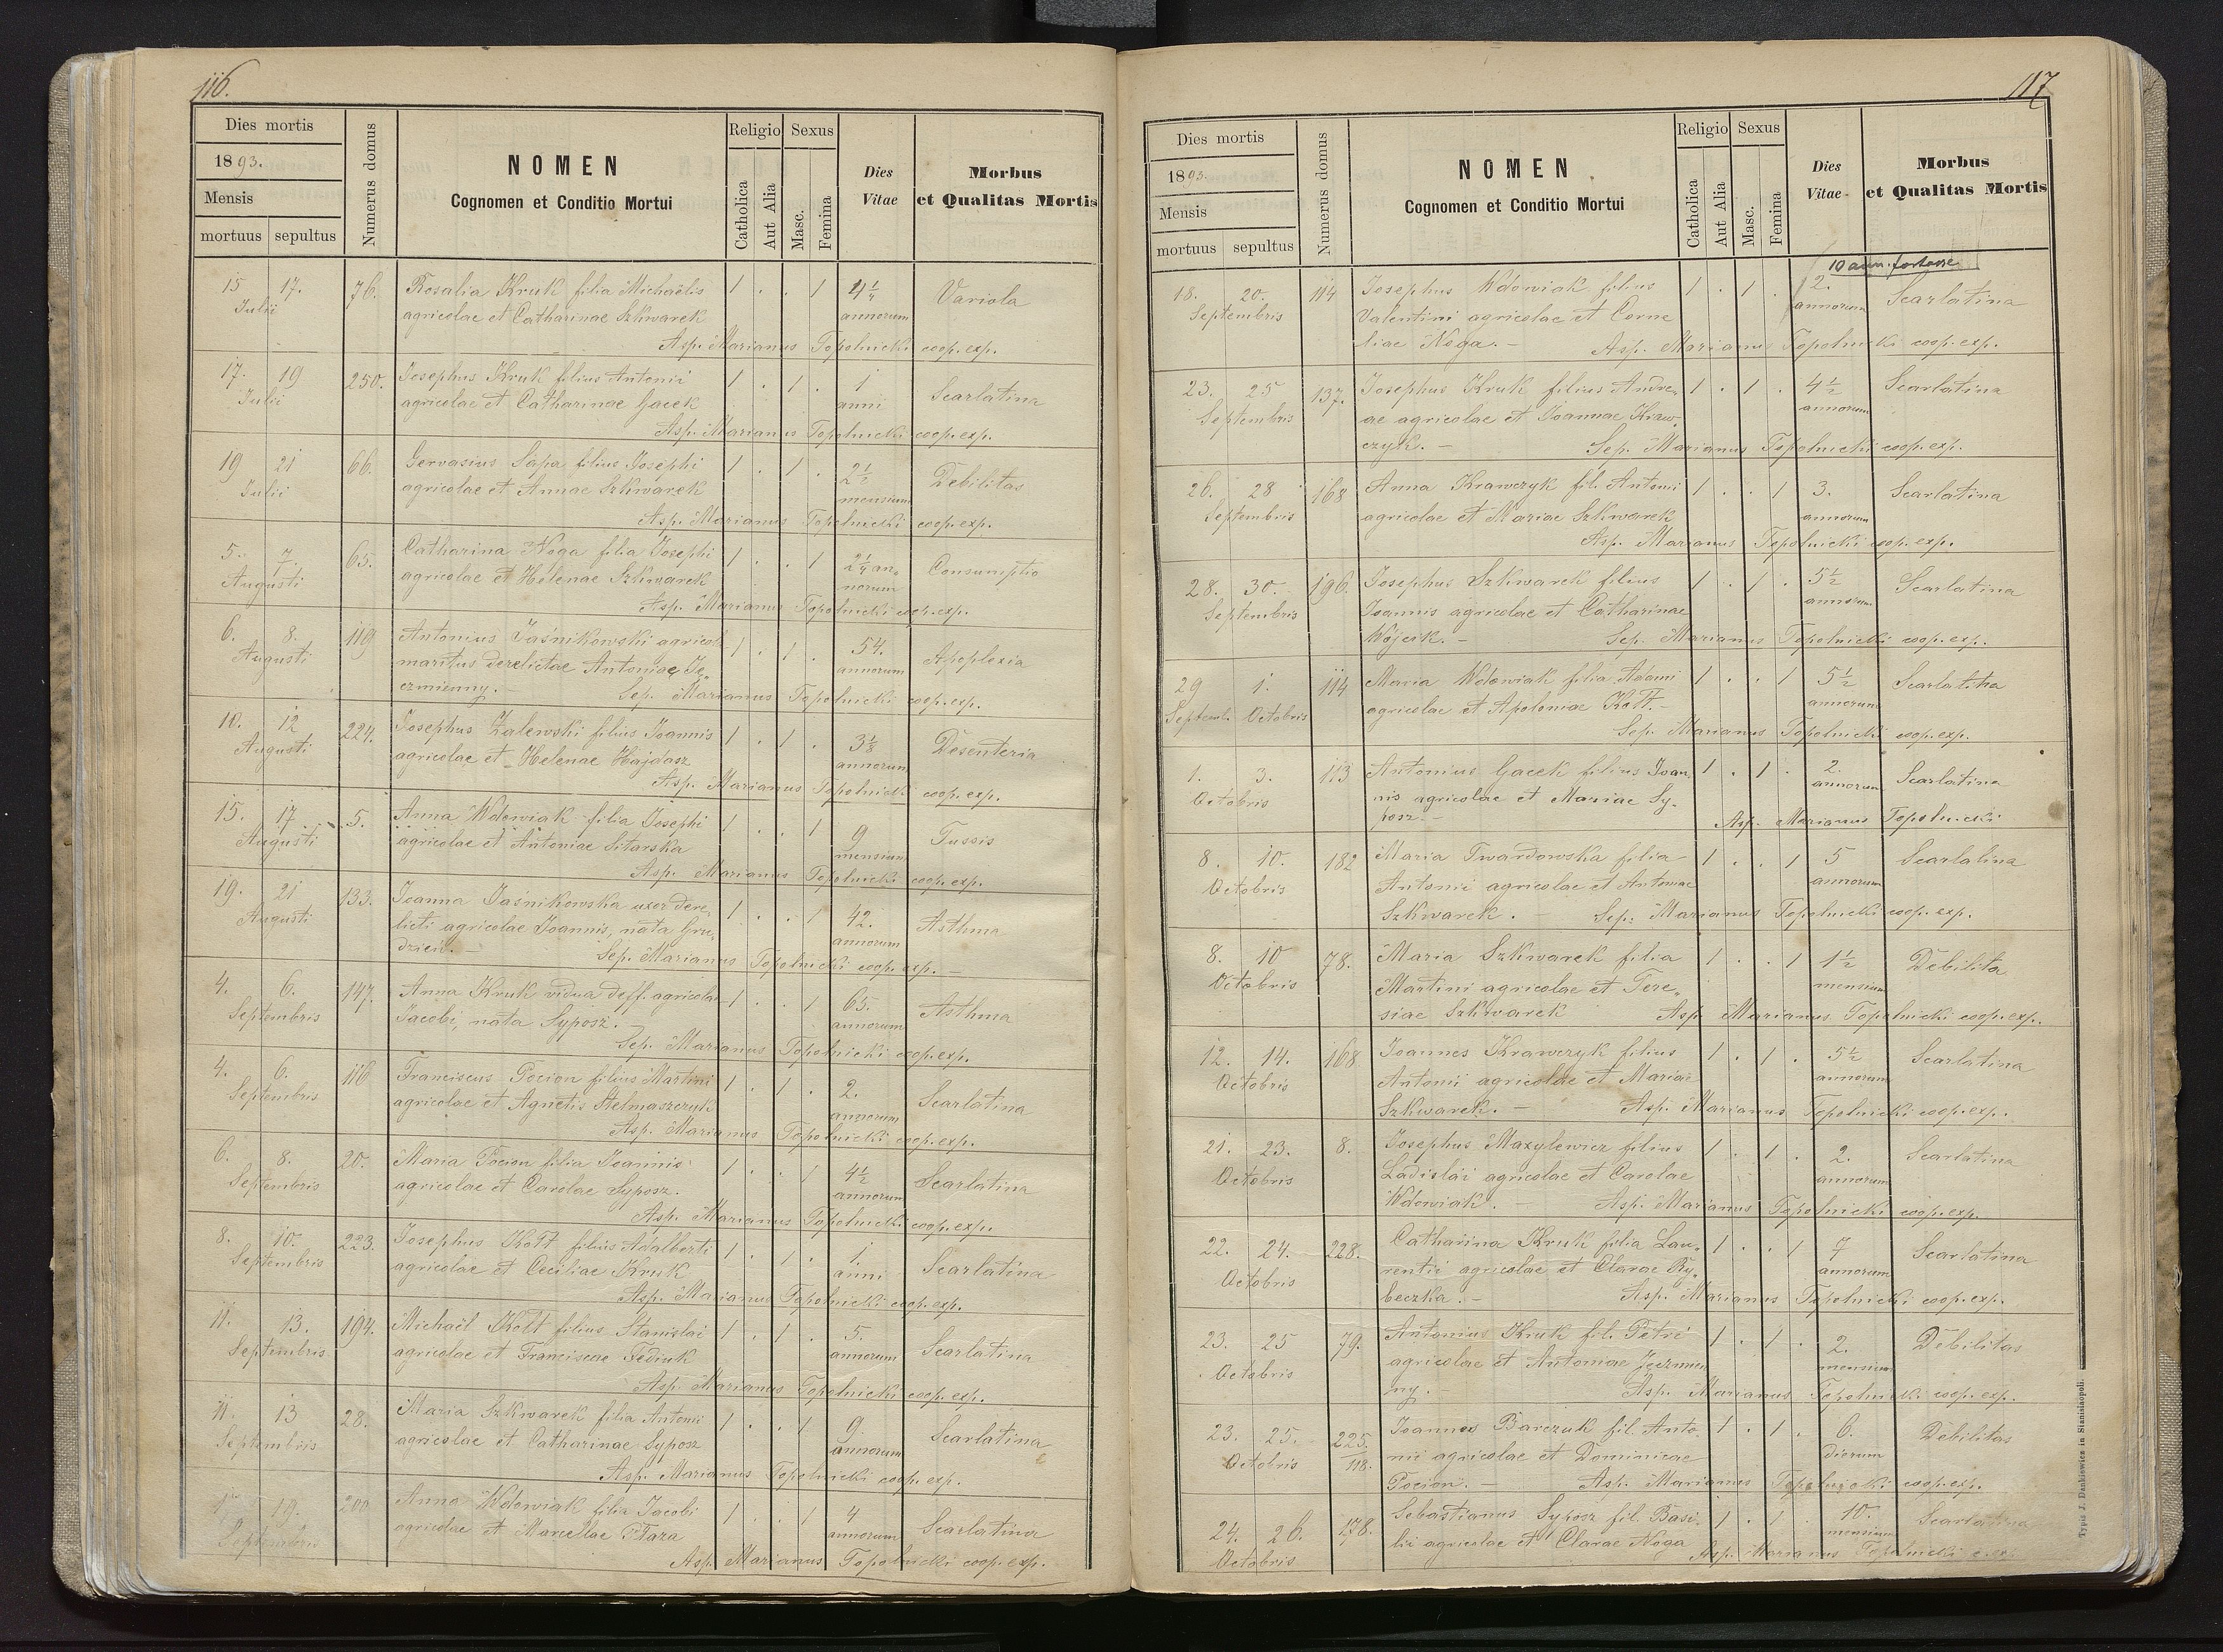 116.
Dies mortis
1893.
Mensis
mortuus sepultus
Numerus domus
NOMEN
Cognomen et Conditio Mortui
Religio
Catholica
Aut Alia
Sexus
Masc.
Femina
Dies
Vitae
Morbus
et Qualitas Mortis
15 17. 76. Rosalia Kruk filia Michaëlis 1 . . 1 4¼ Variola
Julii agricolae et Catharinae Szkwarek annorum
Asp. Marianus Topolnicki coop. exp.
17. 19 250. Josephus Kruk filius Antonii 1 . 1 . 1 Scarlatina
Julii agricolae et Catharinae Gacek anni
Asp. Marianus Topolnicki coop. exp.
19 21 66. Gervasius Sapa filius Josephi 1 . 1 . 2½ Debilitas
Julii agricolae et Annae Szkwarek mensium
Asp. Marianus Topolnicki coop. exp.
5. 7. 65. Catharina Noga filia Josephi 1 . . 1 2¼ an- Consumptio
Augusti agricolae et Helenae Szkwarek norum
Asp. Marianus Topolnicki coop. exp.
6. 8. 119 Antonius Jaśnikowski agricola 1 . 1 . 54. Apoplexia
Augusti maritus derelictae Antoniae Ję- annorum
czmienny. Sep. Marianus Topolnicki coop. exp.
10. 12 224. Josephus Zalewski filius Joannis 1 . 1 . 3⅛ Desenteria
Augusti agricolae et Helenae Hajdasz annorum
Asp. Marianus Topolnicki coop. exp.
15. 17 5. Anna Wdowiak filia Josephi 1 . . 1 9 Tussis
Augusti agricolae et Antoniae Sitarska mensium
Asp. Marianus Topolnicki coop. exp.
19. 21 133. Joanna Jaśnikowska uxor dere- 1 . . 1 42. Asthma
Augusti licti agricolae Joannis, nata Gru- annorum
dzień. Sep. Marianus Topolnicki coop. exp.
4. 6. 147. Anna Kruk vidua deff. agricolae 1 . . 1 65. Asthma
Septembris Jacobi, nata Syposz. annorum
Sep. Marianus Topolnicki coop. exp.
4. 6. 116 Franciscus Pocion filius Martini 1 . 1 . 2. Scarlatina
Septembris agricolae et Agnetis Stelmaszczyk annorum
Asp. Marianus Topolnicki coop. exp.
6. 8. 20. Maria Pocion filia Joannis 1 . . 1 4½ Scarlatina
Septembris agricolae et Carolae Syposz. annorum
Asp. Marianus Topolnicki coop. exp.
8. 10. 223. Josephus Kott filius Adalberti 1 . 1 . 1. Scarlatina
Septembris agricolae et Ceciliae Kruk anni
Asp. Marianus Topolnicki coop. exp.
11. 13. 194. Michaël Kott filius Stanislai 1 . 1 . 5. Scarlatina
Septembris agricolae et Franciscae Fediuk annorum
Asp. Marianus Topolnicki coop. exp.
11. 13 28. Maria Szkwarek filia Antonii 1 . . 1 9. Scarlatina
Septembris agricolae et Catharinae Syposz annorum
Asp. Marianus Topolnicki coop. exp.
19. 200 Anna Wdowiak filia Jacobi 1 . . 1 4 Scarlatina
Septembris agricolae et Marcellae annorum
Asp. Marianus Topolnicki coop. exp.
117
Dies mortis
1893.
Mensis
mortuus sepultus
Numerus domus
NOMEN
Cognomen et Conditio Mortui
Religio
Catholica
Aut Alia
Sexus
Masc.
Femina
Dies
Vitae
Morbus
et Qualitas Mortis
10 ann. fortasse
18. 20. 114 Josephus Wdowiak filius 1 . 1 . 2. Scarlatina
Septembris Valentini agricolae et Corne annorum
liae Noga. Asp. Marianus Topolnicki coop. exp.
23. 25 137. Josephus Kruk filius Andre- 1 . 1 . 4½ Scarlatina
Septembris ae agricolae et Joannae Kraw- annorum
czyk. Sep. Marianus Topolnicki coop. exp.
26. 28 168 Anna Krawczyk fil. Antonii 1 . . 1 3. Scarlatina
Septembris agricolae et Mariae Szkwarek annorum
Asp. Marianus Topolnicki coop. exp.
28. 30. 196. Josephus Szkwarek filius 1 . 1 . 5½ Scarlatina
Septembris Joannis agricolae et Catharinae annorum
Wójcik. Sep. Marianus Topolnicki coop. exp.
29 1. 114 Maria Wdowiak filia Adami 1 . . 1 5½ Scarlatina
Septemb. Octobris agricolae et Apoloniae Kott. annorum
Sep. Marianus Topolnicki coop. exp.
1. 3. 113 Antonius Gacek filius Joan- 1 . 1 . 2. Scarlatina
Octobris nis agricolae et Mariae Sy- annorum
posz. Asp. Marianus Topolnicki
8. 10. 182 Maria Twardowska filia 1 . . 1 5 Scarlatina
Octobris Antonii agricolae et Antoniae annorum
Szkwarek. Sep. Marianus Topolnicki coop. exp.
8. 10 78. Maria Szkwarek filia 1 . . 1 1½ Debilita
Octobris Martini agricolae et Tere- mensium
siae Szkwarek Asp. Marianus Topolnicki coop. exp.
12. 14. 168 Joannes Krawczyk filius 1 . 1 . 5½ Scarlatina
Octobris Antonii agricolae et Mariae annorum
Szkwarek. Asp. Marianus Topolnicki coop. exp.
21. 23. 8. Josephus Mazylewicz filius 1 . 1 . 2. Scarlatina
Octobris Ladislai agricolae et Carolae annorum
Wdowiak. Asp. Marianus Topolnicki coop. exp.
22. 24. 228. Catharina Kruk filia Lau- 1 . . 1 7 Scarlatina
Octobris rentii agricolae et Clarae Ry- annorum
beczka. Asp. Marianus Topolnicki coop. exp.
23. 25 79. Antonius Kruk fil. Petri 1 . 1 . 2. Debilitas
Octobris agricolae et Antoniae Jęczmien mensium
ny. Asp. Marianus Topolnicki coop. exp.
23. 25. 225. Joannes Barczuk fil. Anto- 1 . 1 . 6. Debilitas
Octobris 118. nii agricolae et Dominicae dierum
Pocion. Asp. Marianus Topolnicki coop. exp.
24. 26. 178. Sebastianus Syposz fil. Basi- 1 . 1 . 10. Scarlatina
Octobris lii agricolae et Clarae Noga mensium
Asp. Marianus Topolnicki c. exp.
Typis J. Dankiewicz in Stanislaopoli.